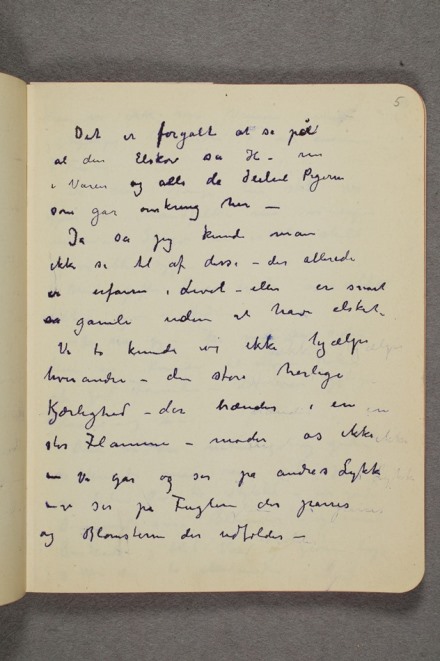 5
Det er forgalt at se på
al den Elskov sa H – nu
i Vaaren og alle de deilie Pigerne
som gar omkring her —
Ja sa jeg kunde man
ikke se til af disse – der allerede
er erfarne i Livet – eller er snart
gamle uden at have elsket.
Vi to kunde vi ikke hjælpe
hverandre – den store herlige
Kjærlighed – der brænder i en
stor Flamme – møder os ikke
– Vi gar og ser pa andres Lykk
– vi ser pa Fuglene der parres
og Blomsterne der udfoldes —